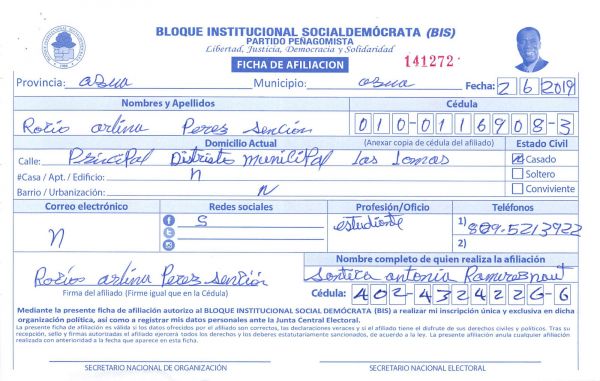 BLOQUE INSTITUCIONAL SOCIALDEMÓCRATA (BIS)
PARTIDO PEÑAGOMISTA
Libertad, Justicia, Democracia y Solidaridad
FICHA DE AFILIACION
141272
Provincia: Azua Municipio: azua Fecha: 2 6 2019
Nombres y Apellidos Cédula
Rocio arlina Perez Sención 010-0116908-3
Domicilio Actual (Anexar copia de cédula del afiliado) Estado Civil
Calle: Principal Distrito Municipal Las Lomas Casado
#Casa / Apt. / Edificio: n Soltero
Barrio / Urbanización: N Conviviente
Correo electrónico Redes sociales Profesión/Oficio Teléfonos
n S estudiante 1) 809-521-3922
2)
Nombre completo de quien realiza la afiliación
Rocios arlina Perez sención antonia
Firma del afiliado (Firme igual que en la Cédula) Cédula: 402-4324226-6
Mediante la presente ficha de afiliación autorizo al BLOQUE INSTITUCIONAL SOCIAL DEMÓCRATA (BIS) a realizar mi inscripción única y exclusiva en dicha
organización política, así como a registrar mis datos personales ante la Junta Central Electoral.
La presente ficha de afiliación es válida si los datos ofrecidos por el afiliado son correctos, las declaraciones veraces y si el afiliado tiene el disfrute de sus derechos civiles y políticos. Tras su
recepción, sello y firmas autorizadas el afiliado ejercerá todos los derechos y los deberes estatutariamente sancionados, de acuerdo a la ley. La presente afiliación anula cualquier afiliación
realizada con anterioridad a la fecha que aparece en esta ficha.
SECRETARIO NACIONAL DE ORGANIZACIÓN SECRETARIO NACIONAL ELECTORAL